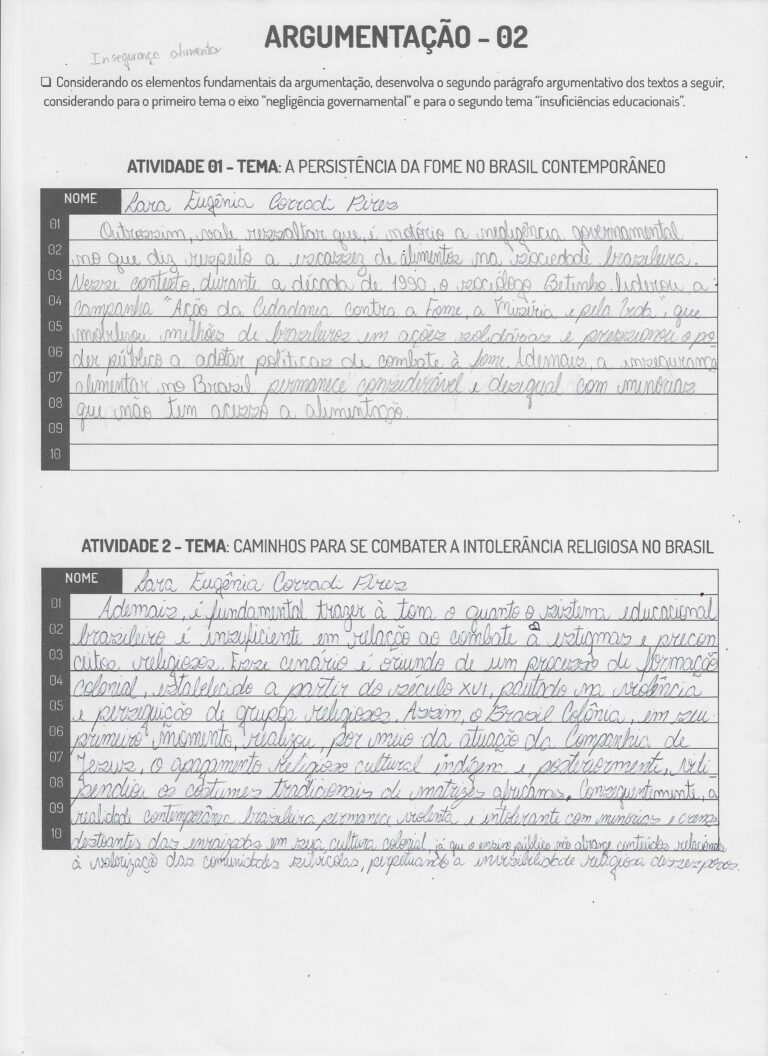 ARGUMENTAÇÃO - 02
Insegurança alimentar
❏ Considerando os elementos fundamentais da argumentação, desenvolva o segundo parágrafo argumentativo dos textos a seguir,
considerando para o primeiro tema o eixo "negligência governamental" e para o segundo tema "insuficiências educacionais".
ATIVIDADE 01 - TEMA: A PERSISTÊNCIA DA FOME NO BRASIL CONTEMPORÂNEO
NOME Lara Eugênia Corradi Pires
01 Outrossim, vale ressaltar que, é notório a negligência governamental
02 no que diz respeito a escassez de alimentos na sociedade brasileira.
03 Nesse contexto, durante a década de 1990, o sociólogo Betinho liderou a
04 campanha "Ação da Cidadania contra a Fome, a Miséria e pela Vida", que
05 mobilizou milhões de brasileiros em ações solidárias e pressionou o po-
06 der público a adotar políticas de combate à fome. Ademais, a insegurança
07 alimentar no Brasil permanece considerável e desigual com minorias
08 que não tem acesso a alimentação.
09
10
ATIVIDADE 2 - TEMA: CAMINHOS PARA SE COMBATER A INTOLERÂNCIA RELIGIOSA NO BRASIL
NOME Lara Eugênia Corradi Pires
01 Ademais, é fundamental trazer à tona o quanto o sistema educacional
02 brasileiro é insuficiente em relação ao combate à estigmas e precon
03 ceitos religiosos. Esse cenário é oriundo de um processo de formação
04 colonial, estabelecido a partir do século XVI, pautado na violência
05 e perseguição de grupos religiosos. Assim, o Brasil Colônia, em seu
06 primeiro momento, realizou, por meio da atuação da Companhia de
07 Jesus, o apagamento religioso cultural indígena e, posteriormente, vili-
08 pendiou os costumes tradicionais de matrizes africanas. Consequentemente, a
09 realidade contemporânea brasileira permanece violenta e intolerante com minorias e crenças
10 destoantes das enraizadas em sua cultura colonial, já que o ensino público não abrange conteúdos relacionados
à valorização das comunidades silvícolas, perpetuando a invisibilidade religiosa desses povos.